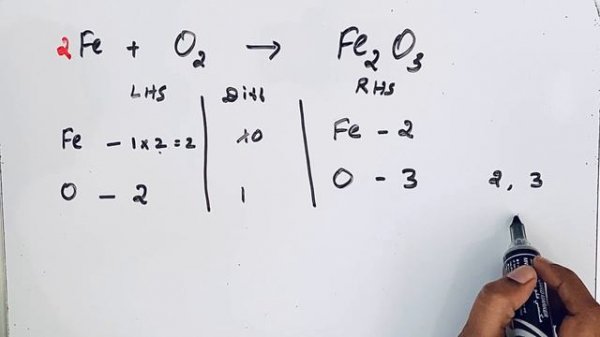 2Fe + O₂ → Fe₂O₃
LHS Diff RHS
Fe - 1 x 2 = 2 0 Fe - 2
O - 2 1 O - 3 2, 3